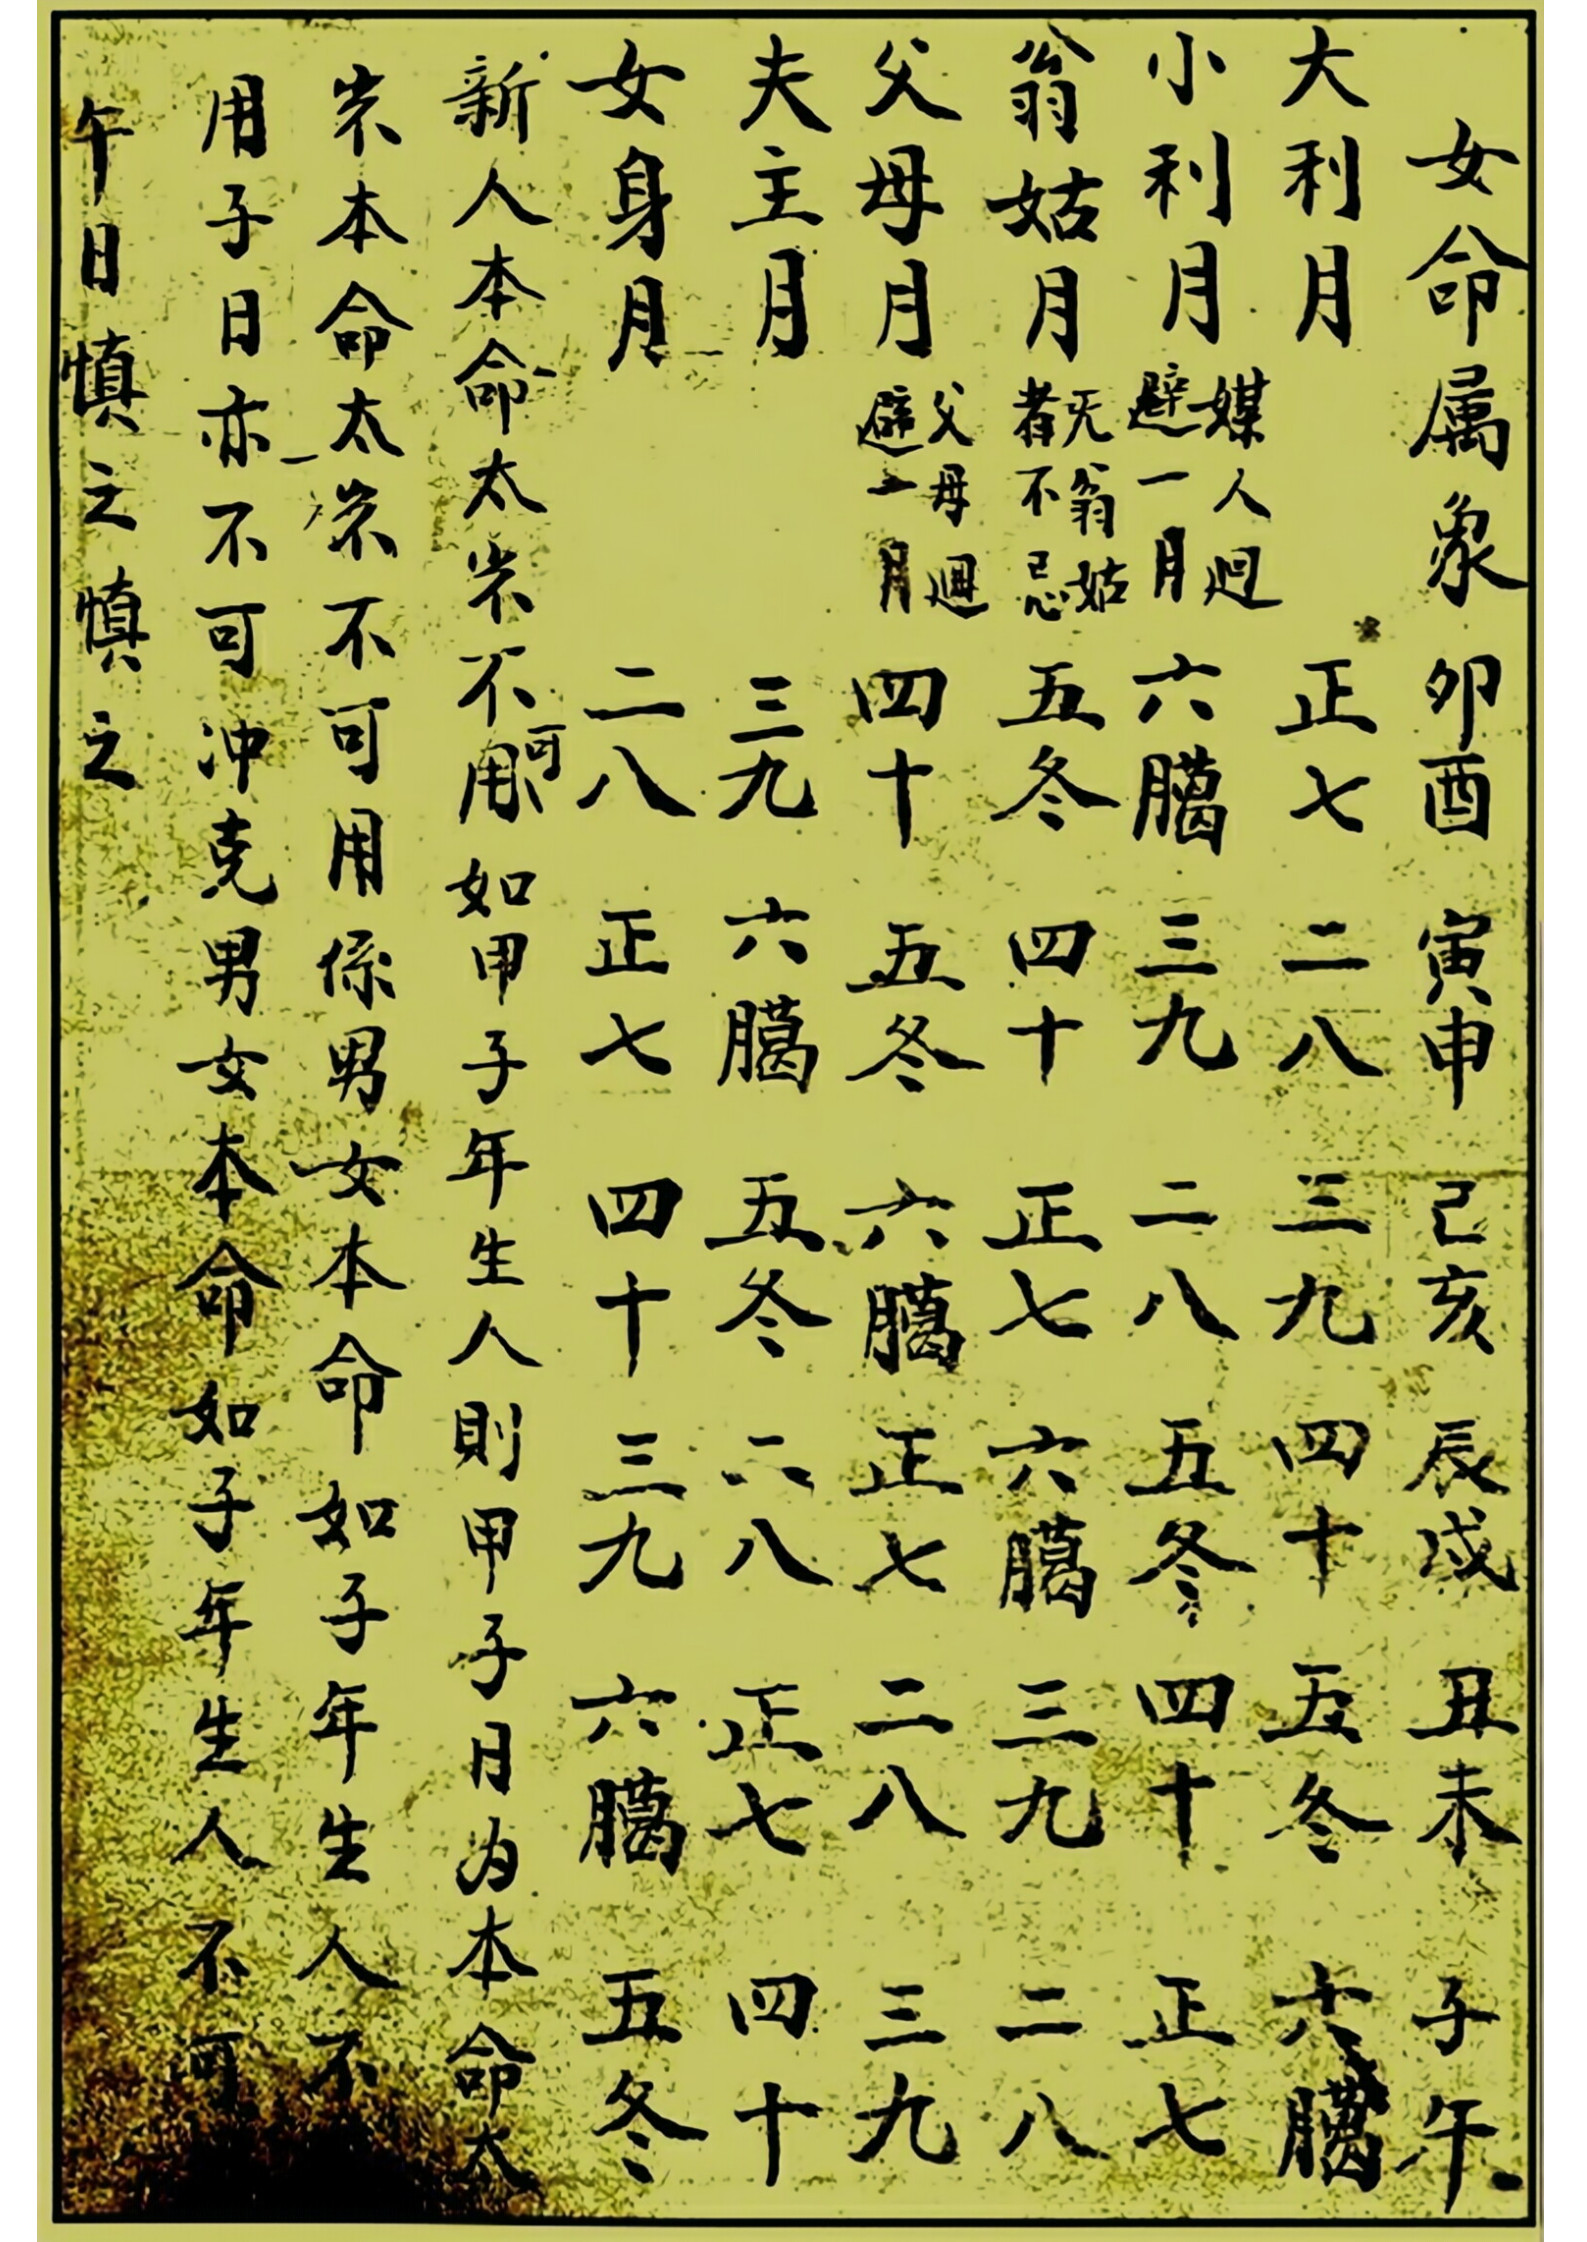 女命属象 卯酉 寅申 己亥 辰戌 丑未 子午
大利月 正七 二八 三九 四十 五冬 六臈
小利月 媒人迴避一月 六臈 三九 二八 五冬 四十 正七
翁姑月 无翁姑者不忌 五冬 四十 正七 六臈 三九 二八
父母月 父母迴避一月 四十 五冬 六臈 正七 二八 三九
夫主月 三九 六臈 五冬 二八 正七 四十
女身月 二八 正七 四十 三九 六臈 五冬
新人本命太岁不可用如甲子年生人則甲子月为本命太
岁本命太岁不可用係男女本命如子年生人不
用子日亦不可冲克男女本命如子年生人不可
午日慎之慎之